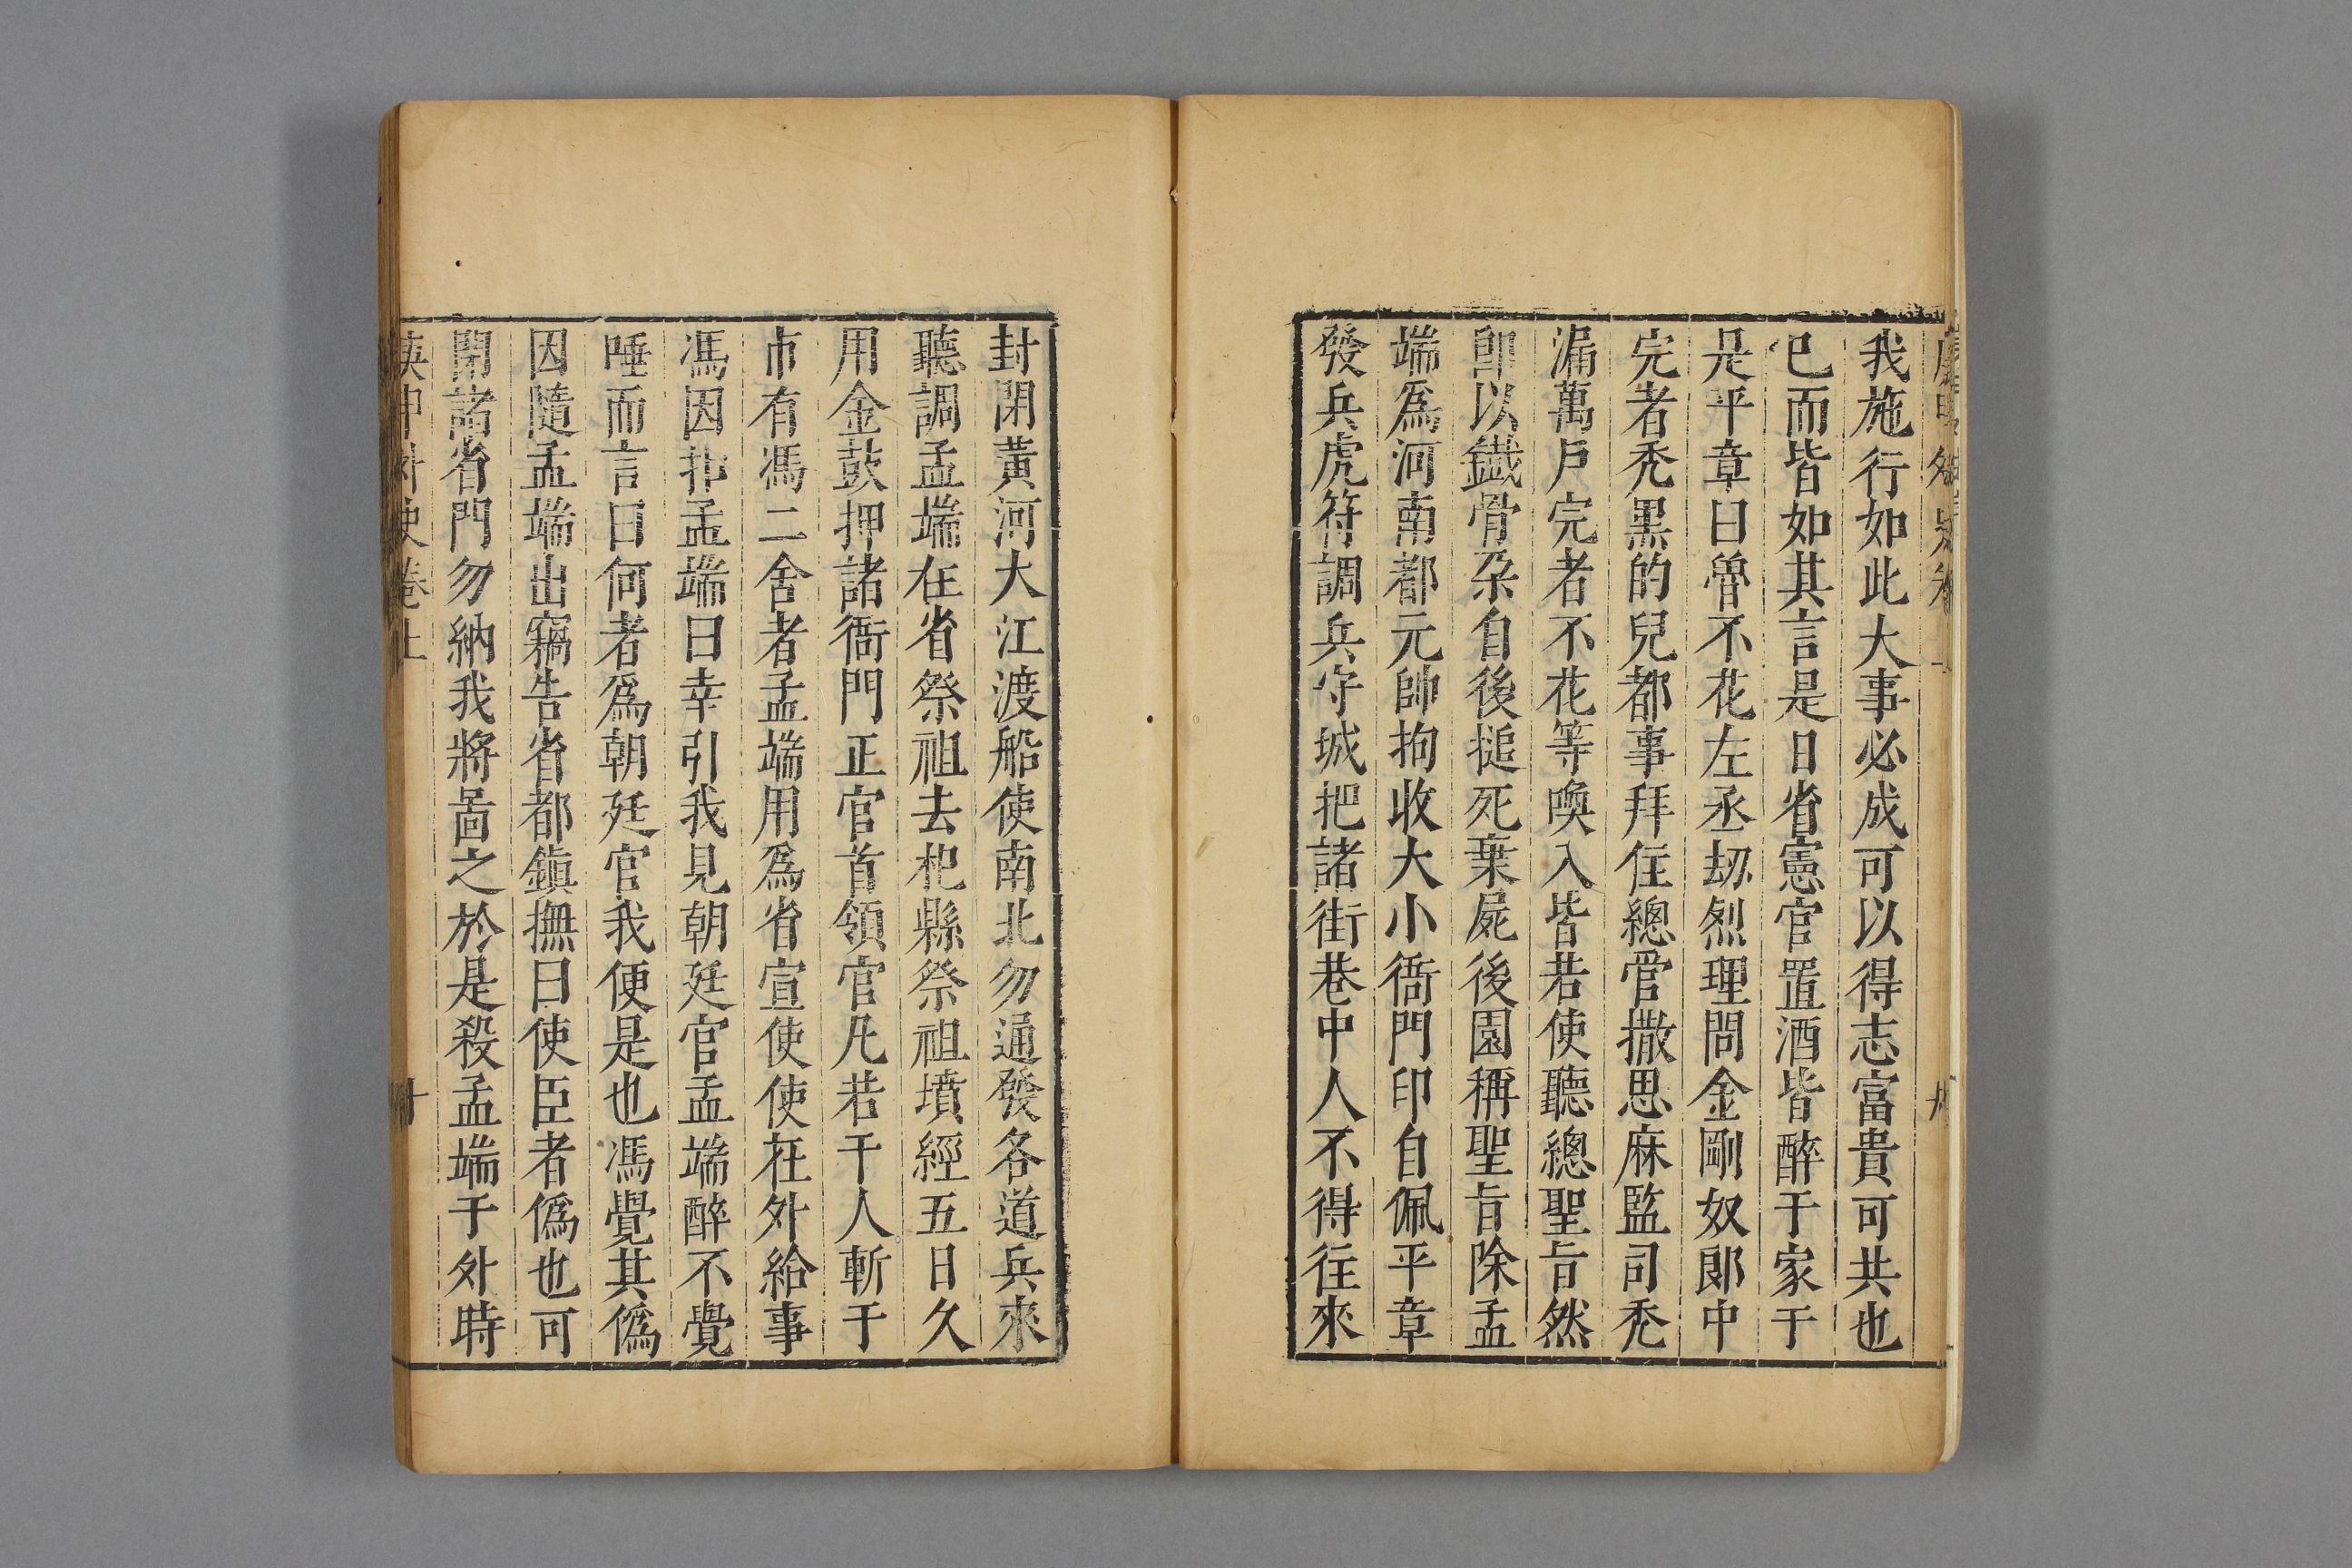 我施行如此大事必成可以得志富貴可共也
已而皆如其言是日省憲官置酒皆醉于家于
是平章曰曾不花左丞刼烈理問金剛奴郎中
完者禿黑的兒都事拜住總管撒思麻監司禿
漏萬戶完者不花等喚入皆若使聽總聖旨然
卽以鐵骨朶自後搥死棄屍後園稱聖旨除孟
端爲河南都元帥拘收大小衙門印自佩平章
發兵虎符調兵守城把諸街巷中人不得徃來
封閉黃河大江渡船使南北勿通發各道兵來
聽調孟端在省祭祖去杞縣祭祖墳經五日久
用金鼓押諸衙門正官首領官凡若干人斬于
市有馮二舍者孟端用爲省宣使使在外給事
馮因扑孟端曰幸引我見朝廷官孟端醉不覺
唾而言曰何者爲朝廷官我便是也馮覺其僞
因隨孟端出竊告省都鎮撫曰使臣者僞也可
閉諸省門勿納我將啚之於是殺孟端于外時
庚申外史卷上
十